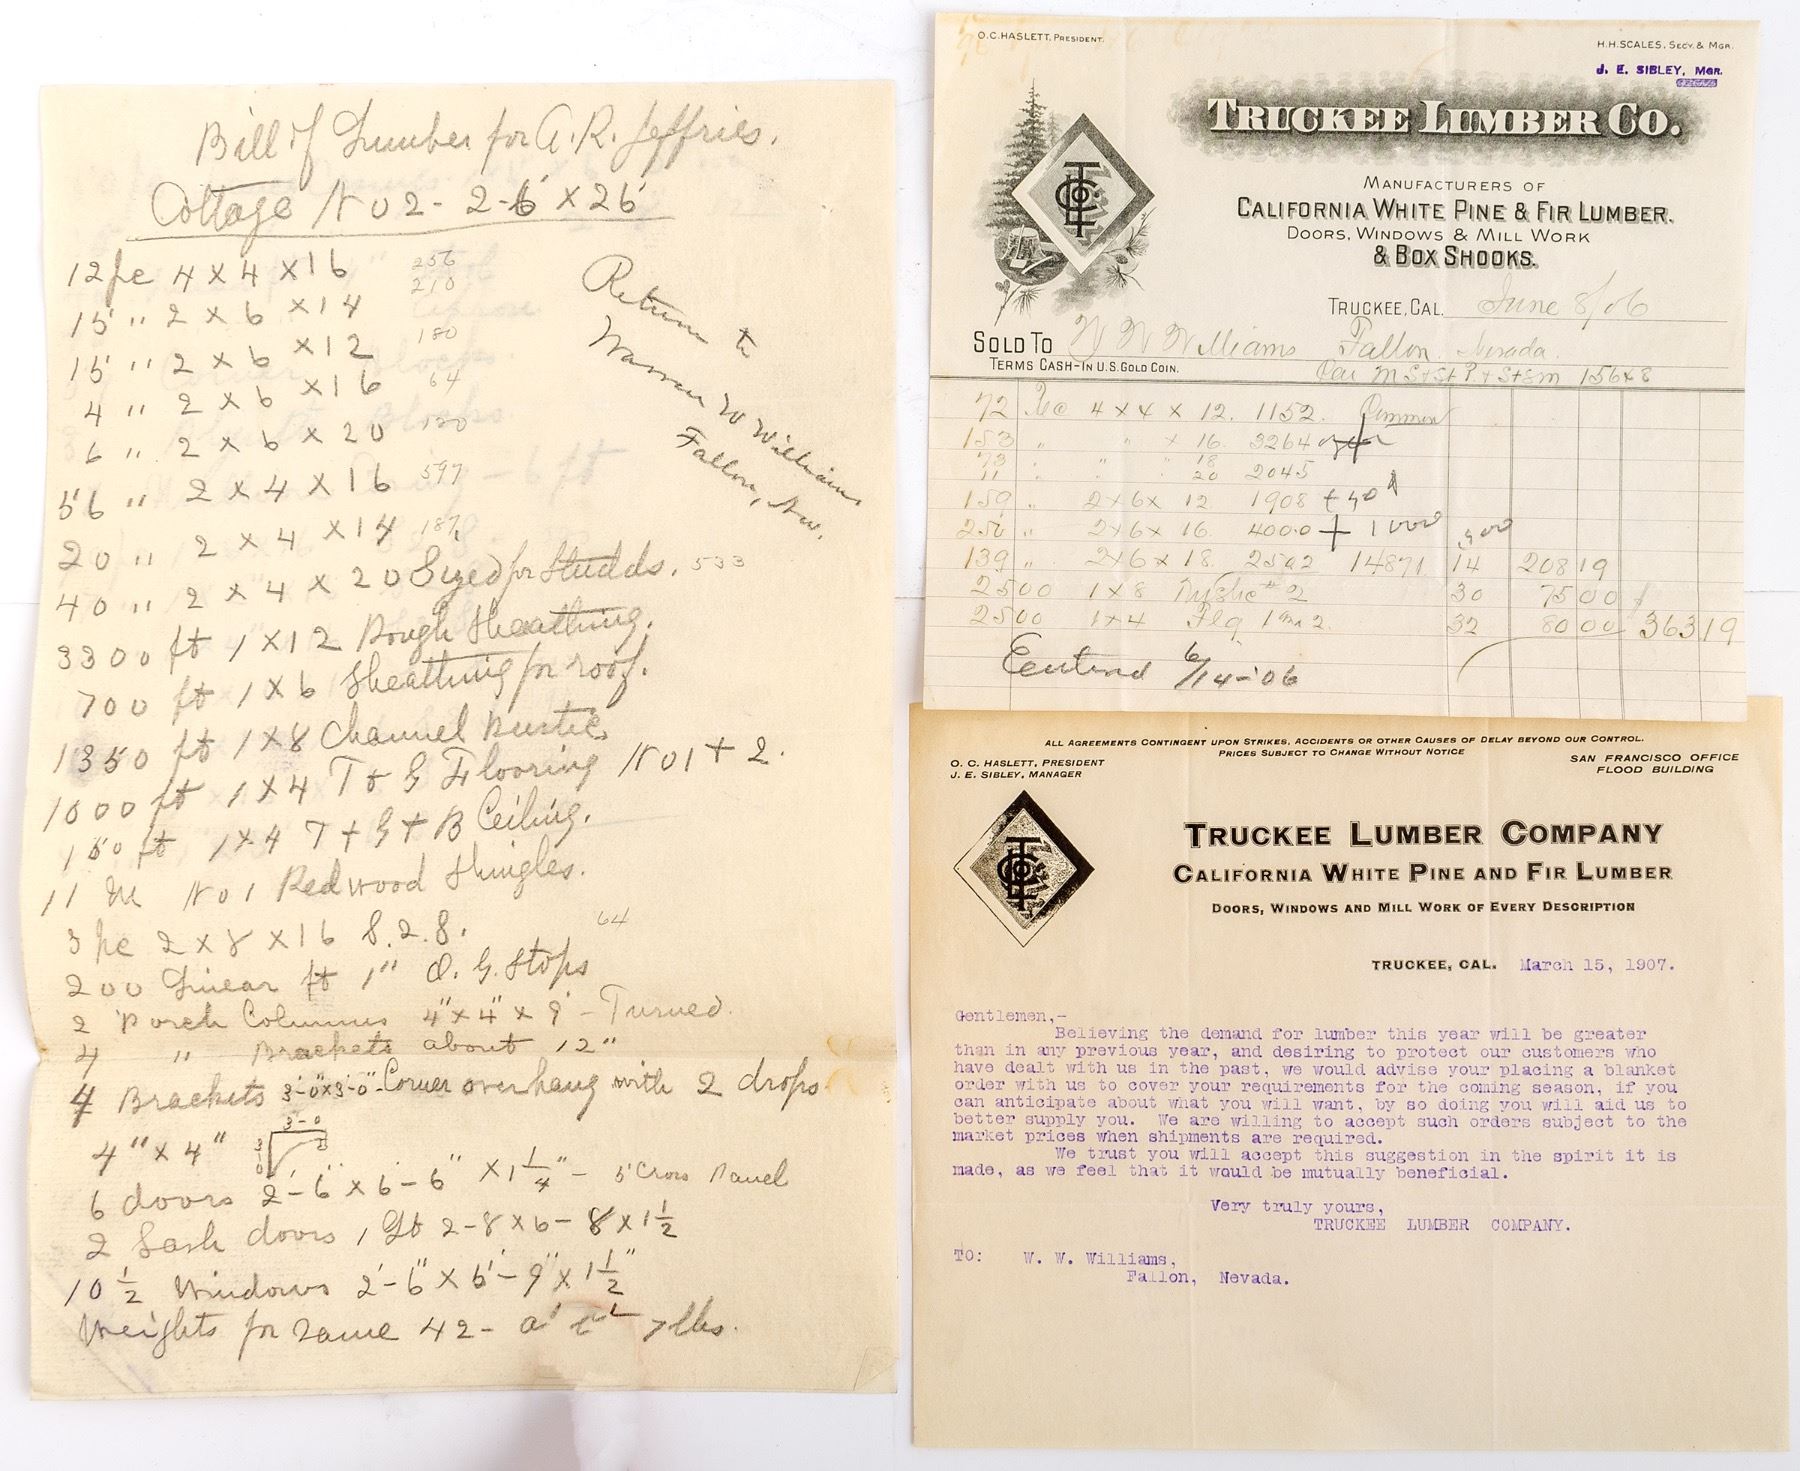 Bill of Lumber for A. R. Jeffries.
Cottage No 2 - 2-6' x 26'
12 pc 4 x 4 x 16 256
15 " 2 x 6 x 14 210
15 " 2 x 6 x 12 180
4 " 2 x 6 x 16 64
6 " 2 x 6 x 20 120
56 " 2 x 4 x 16 597
20 " 2 x 4 x 14 187
40 " 2 x 4 x 20 Sized for Studds. 533
3300 ft 1 x 12 Rough Sheathing.
700 ft 1 x 6 Sheathing for roof.
1350 ft 1 x 8 Channel Rustic
1000 ft 1 x 4 T & G Flooring No 1 + 2.
150 ft 1 x 4 T + G + B Ceiling.
11 M No 1 Redwood Shingles.
3 pc 2 x 8 x 16 S.2.S. 64
200 Linear ft 1" O.G. Stops
2 Porch Columns 4" x 4" x 9' - Turned.
4 " Brackets about 12"
4 Brackets 3'-0" x 3'-0" - Corner overhang with 2 drops
4" x 4" 3-0 3-0
6 doors 2'-6" x 6'-6" x 1 1/4" - 5 Cross Panel
2 Sash doors 1 Lt 2-8 x 6-8 x 1 1/2
10 1/2 Windows 2'-6" x 6'-9" x 1 1/2"
Weights for same 42 - 7 lbs.
Return to
Warren W Williams
Fallon, Nev.
O. C. HASLETT, PRESIDENT.
H. H. SCALES, SECY. & MGR.
J. E. SIBLEY, MGR.
TRUCKEE LUMBER CO.
MANUFACTURERS OF
CALIFORNIA WHITE PINE & FIR LUMBER.
DOORS, WINDOWS & MILL WORK
& BOX SHOOKS.
TRUCKEE, CAL. June 8/06
SOLD TO W W Williams Fallon. Nevada.
TERMS CASH-IN U.S. GOLD COIN. Car 15648
72 Pcs 4 x 4 x 12. 1152. Common
153 " " x 16. 3264
73 " " " 18
11 " " 20 2045
159 " 2 x 6 x 12 1908
250 " 2 x 6 x 16. 4000 + 1000
139 " 2 x 6 x 18. 2502 14871 14 208 19
2500 1 x 8 Rustic # 2 30 75 00
2500 1 x 4 Flg 1 & 2. 32 80 00 363 19
Entered 6/14-'06
ALL AGREEMENTS CONTINGENT UPON STRIKES, ACCIDENTS OR OTHER CAUSES OF DELAY BEYOND OUR CONTROL.
PRICES SUBJECT TO CHANGE WITHOUT NOTICE
O. C. HASLETT, PRESIDENT
J. E. SIBLEY, MANAGER
SAN FRANCISCO OFFICE
FLOOD BUILDING
TRUCKEE LUMBER COMPANY
CALIFORNIA WHITE PINE AND FIR LUMBER
DOORS, WINDOWS AND MILL WORK OF EVERY DESCRIPTION
TRUCKEE, CAL. March 15, 1907.
Gentlemen,-
Believing the demand for lumber this year will be greater
than in any previous year, and desiring to protect our customers who
have dealt with us in the past, we would advise your placing a blanket
order with us to cover your requirements for the coming season, if you
can anticipate about what you will want, by so doing you will aid us to
better supply you. We are willing to accept such orders subject to the
market prices when shipments are required.
We trust you will accept this suggestion in the spirit it is
made, as we feel that it would be mutually beneficial.
Very truly yours,
TRUCKEE LUMBER COMPANY.
TO: W. W. Williams,
Fallon, Nevada.